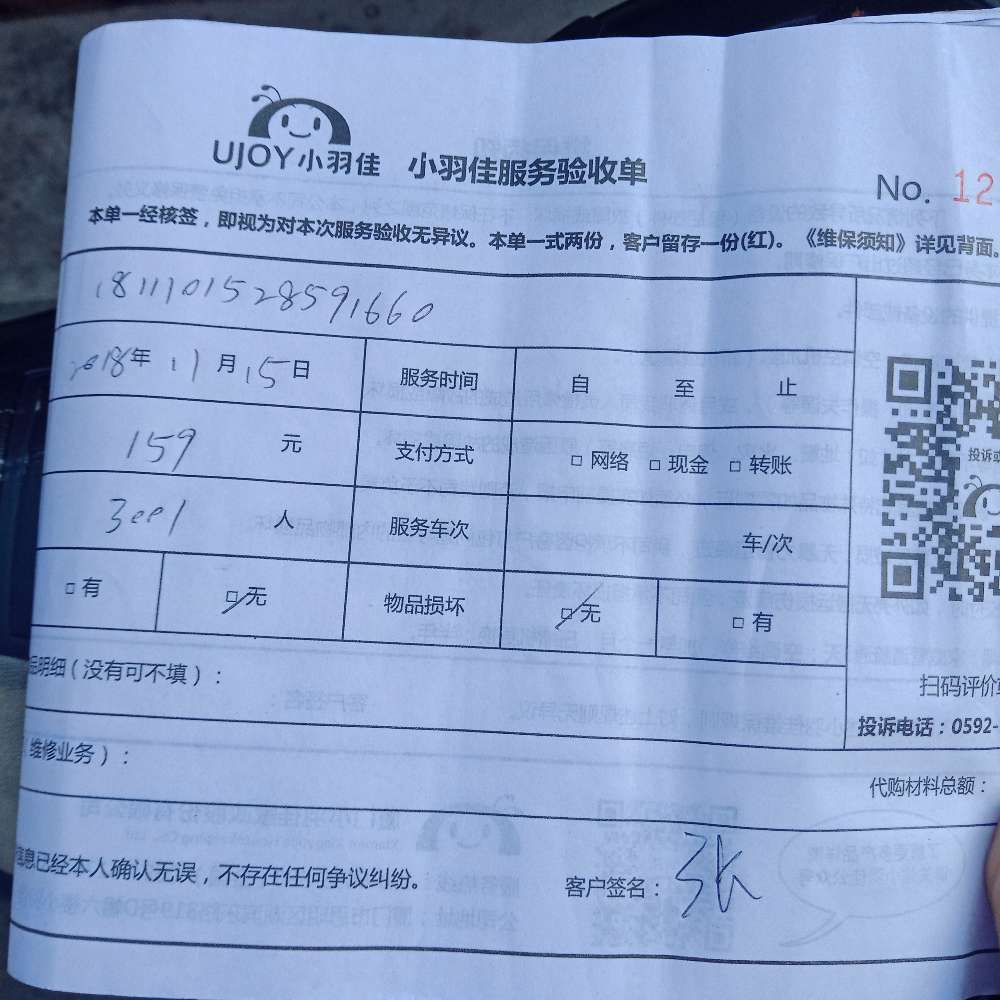 UJOY小羽佳 小羽佳服务验收单
No. 12
本单一经核签，即视为对本次服务验收无异议。本单一式两份，客户留存一份(红)。《维保须知》详见背面。
1811101528591660
2018年 11月15日 服务时间 自 至 止
159 元 支付方式 □ 网络 □ 现金 □ 转账
3001 人 服务车次 车/次
□ 有 □ 无 物品损坏 □ 无 □ 有
投诉或
扫码评价
明细（没有可不填）：
投诉电话：0592-
维修业务）：
代购材料总额：
息已经本人确认无误，不存在任何争议纠纷。
客户签名：张